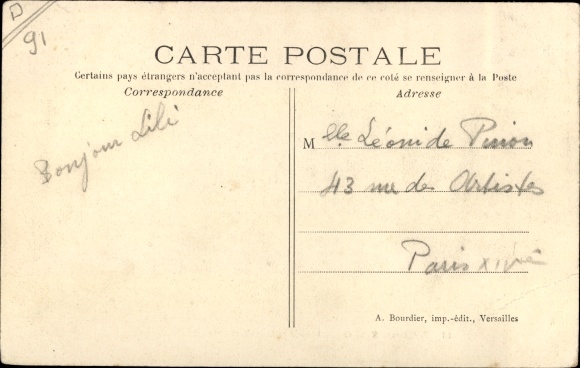 D
91
CARTE POSTALE
Certains pays étrangers n'acceptant pas la correspondance de ce coté se renseigner à la Poste
Correspondance
Bonjour Lili
Adresse
Mlle Léonide
43 rue des Artistes
Paris
A. Bourdier, imp.-édit., Versailles